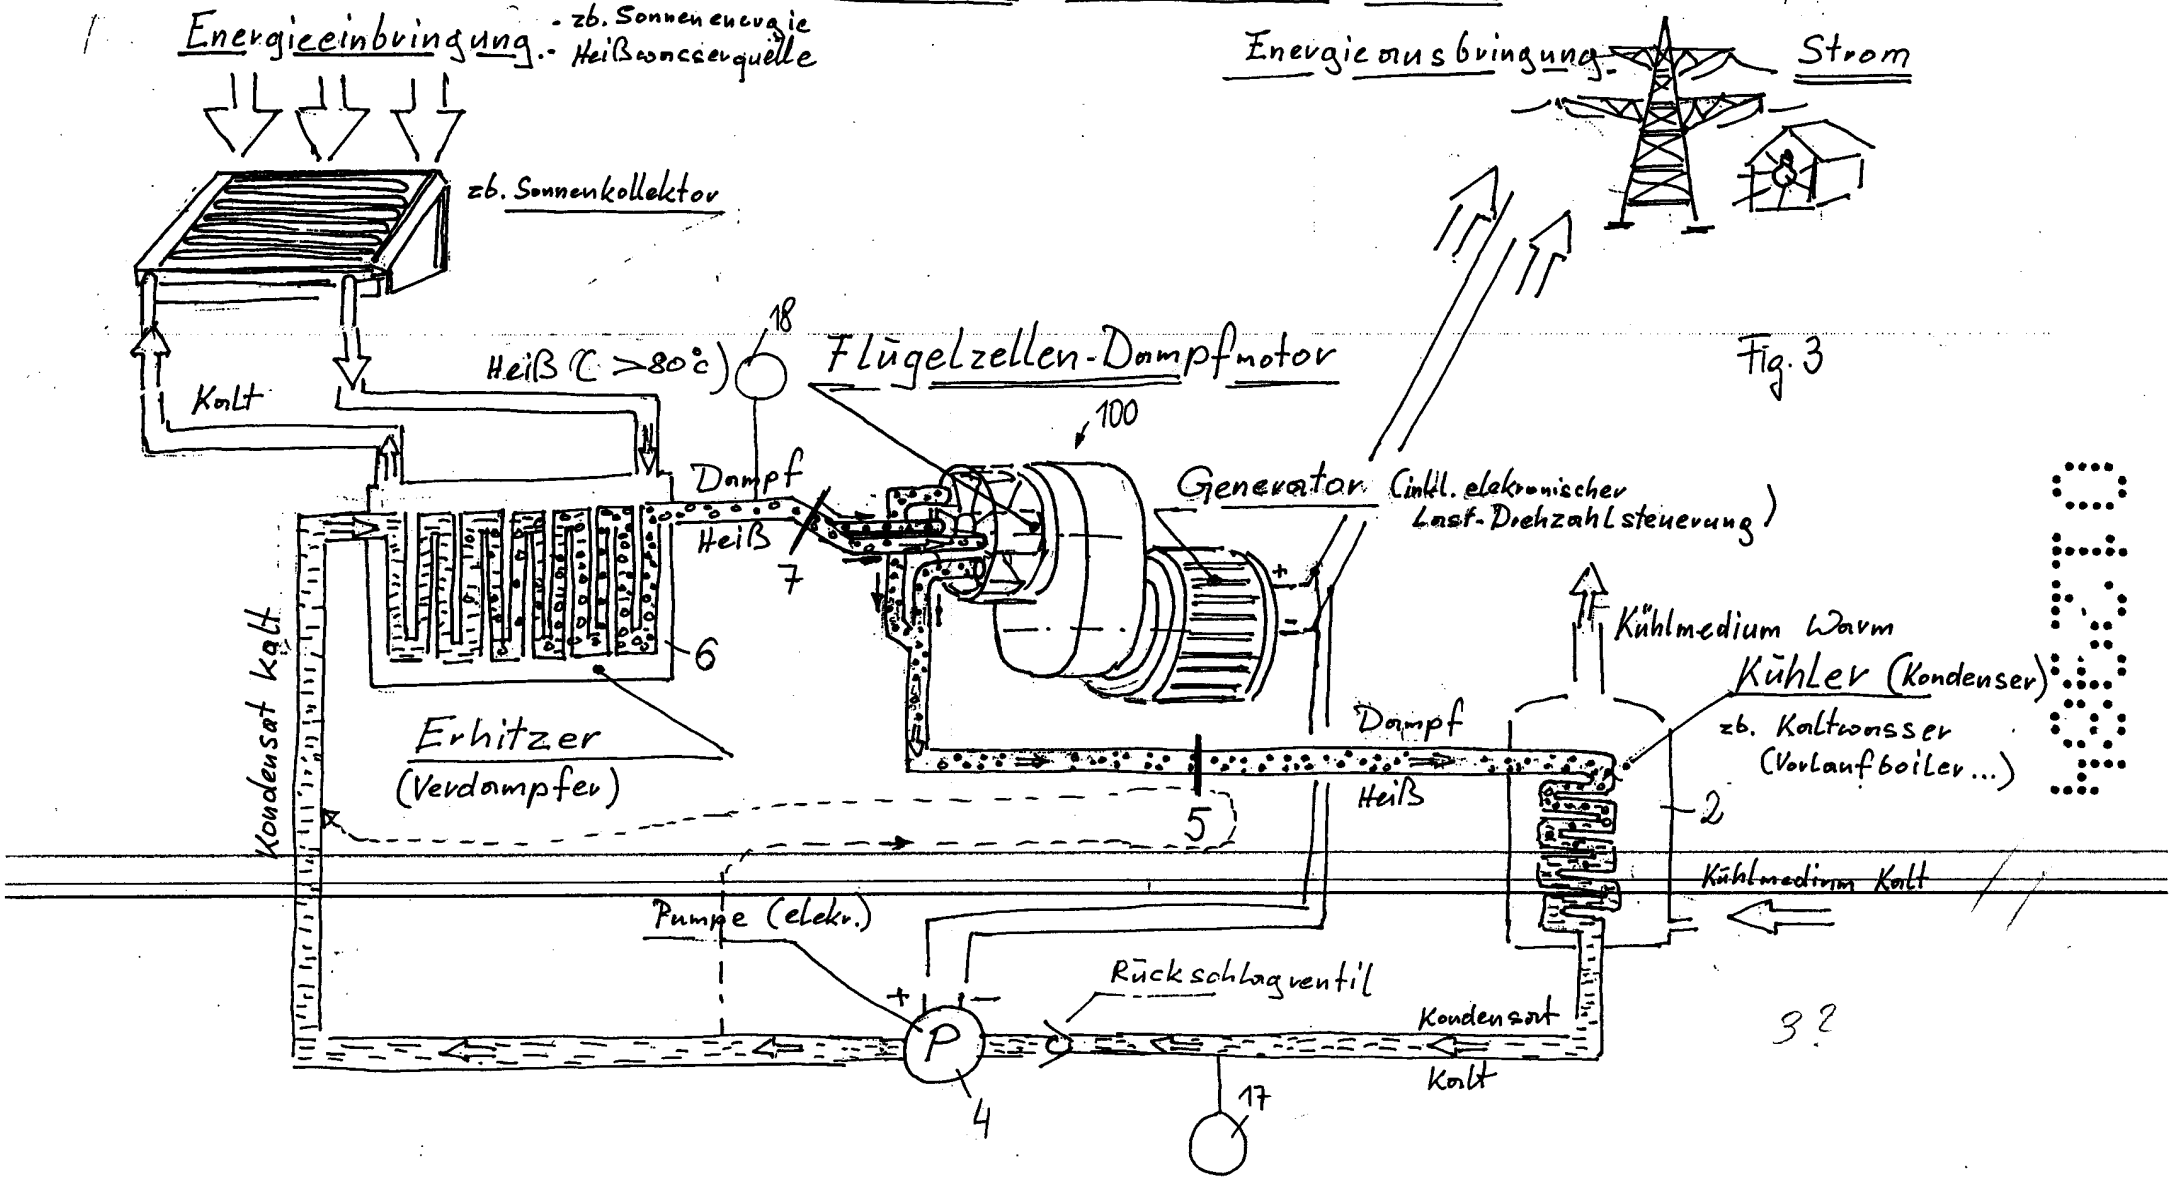 Energieeinbringung.
- zb. Sonnenenergie
- Heißwasserquelle
Energieausbringung.
Strom
zb. Sonnenkollektor
18
Heiß ( >80°c)
Flügelzellen-Dampfmotor
Fig. 3
Kalt
100
Dampf
Heiß
7
Generator (inkl. elekronischer
Last-Drehzahlsteuerung)
+
-
6
Kühlmedium Warm
Kühler (Kondenser)
zb. Kaltwasser
(Vorlaufboiler...)
Kondensat kalt
Erhitzer
(Verdampfer)
Dampf
Heiß
5
2
Kühlmedium Kalt
Pumpe (elekr.)
Rückschlagventil
+ -
P
4
Kondensat
Kalt
17
3?